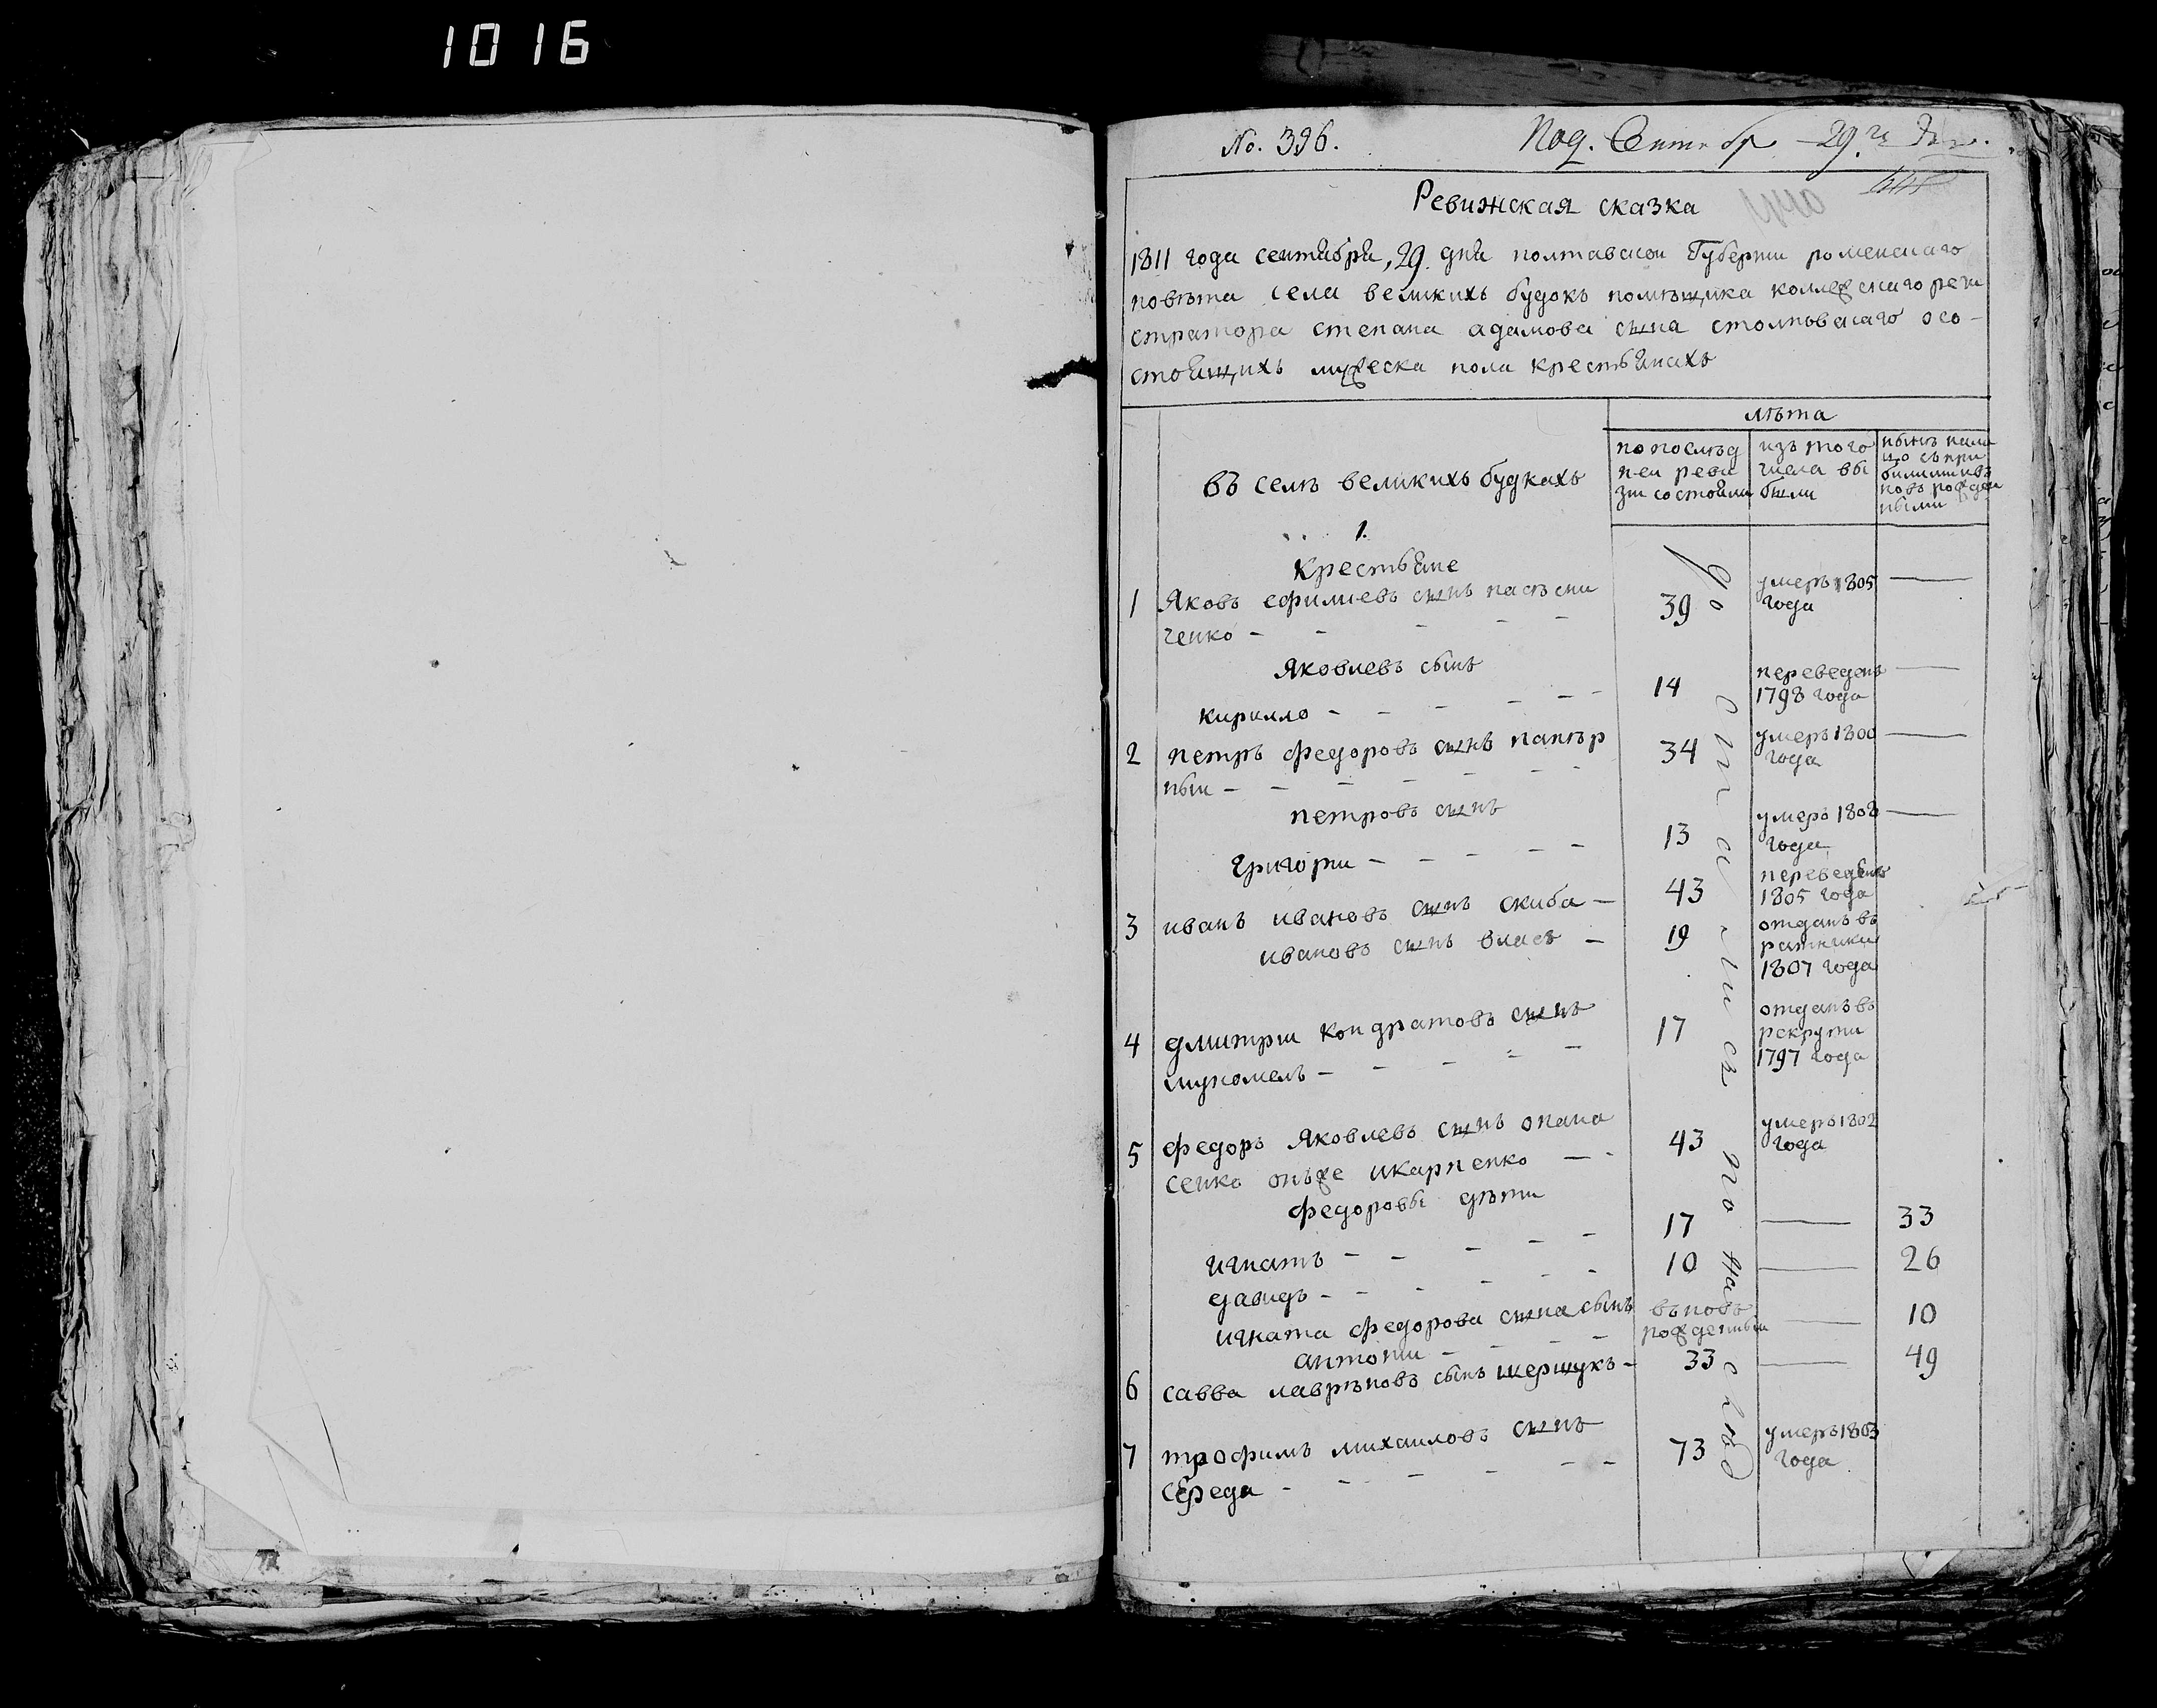 1016
No. 396.
Под. Сентябр 29.го
Ревижская сказка
1811 года сентября, 29. дня полтавскои Губернии роменскаго
повѣта села великихъ будокъ помѣщика коллежскаго реги
стратора степана адамова сына столповскаго осо-
стоящихъ мужеска пола крестьянахъ
лѣта
въ селѣ великихъ будкахъ
по послѣд
неи реви
зии состояли
изъ того
числа вы
были
нынѣ нали
цо съ при
былими въ
новь рожден
ными
1.
крестьяне
1 Яковъ ефимиевъ сынъ пасѣчни
ченко - - - - - 39 умеръ 1805 года —
Яковлевъ сынъ
кирилло - - - - - 14 переведенъ 1798 года —
2 петръ федоровъ сынъ панѣр
ныи - - - - - - 34 умеръ 1800 года —
петровъ сынъ
григории - - - - - 13 умеръ 1808 года —
3 иванъ ивановъ сынъ скиба - 43 переведенъ 1805 года
ивановъ сынъ власъ - 19 отданъ въ ратники 1807 года
4 дмитрии кондратовъ сынъ
мукомелъ - - - - - 17 отданъ въ рекрути 1797 года
5 федоръ Яковлевъ сынъ опана
сенко онъже икарпенко - - 43 умеръ 1802 года
федоровы дѣти
игнатъ - - - - - 17 — 33
давидъ - - - - - 10 — 26
игната федорова сына сынъ
антони - - - въновь рожденныи — 10
6 савва лаврѣновъ сынъ шершукъ - 33 — 49
7 трофимъ михаиловъ сынъ
середа - - - - - - 73 умеръ 1803 года